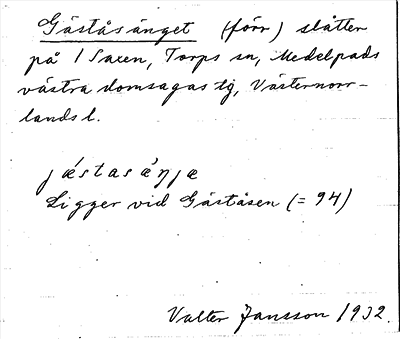 Gäståsänget (förr) slåtter
på 1 Saxen, Torps sn, Medelpads
västra domsagas tg, Västernorr-
lands l.
jæ´stasæ`ŋjæ
Ligger vid Gäståsen (= 94)
Valter Jansson 1932.